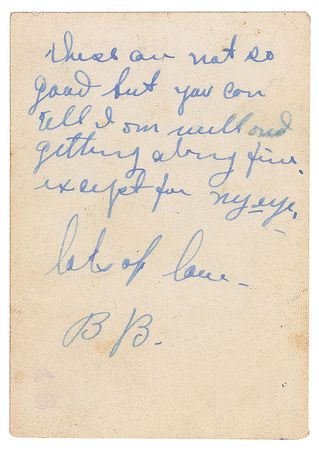 these are not so
good but you can
tell I am well and
getting along fine.
except for my eye.
lots of love -
B B.